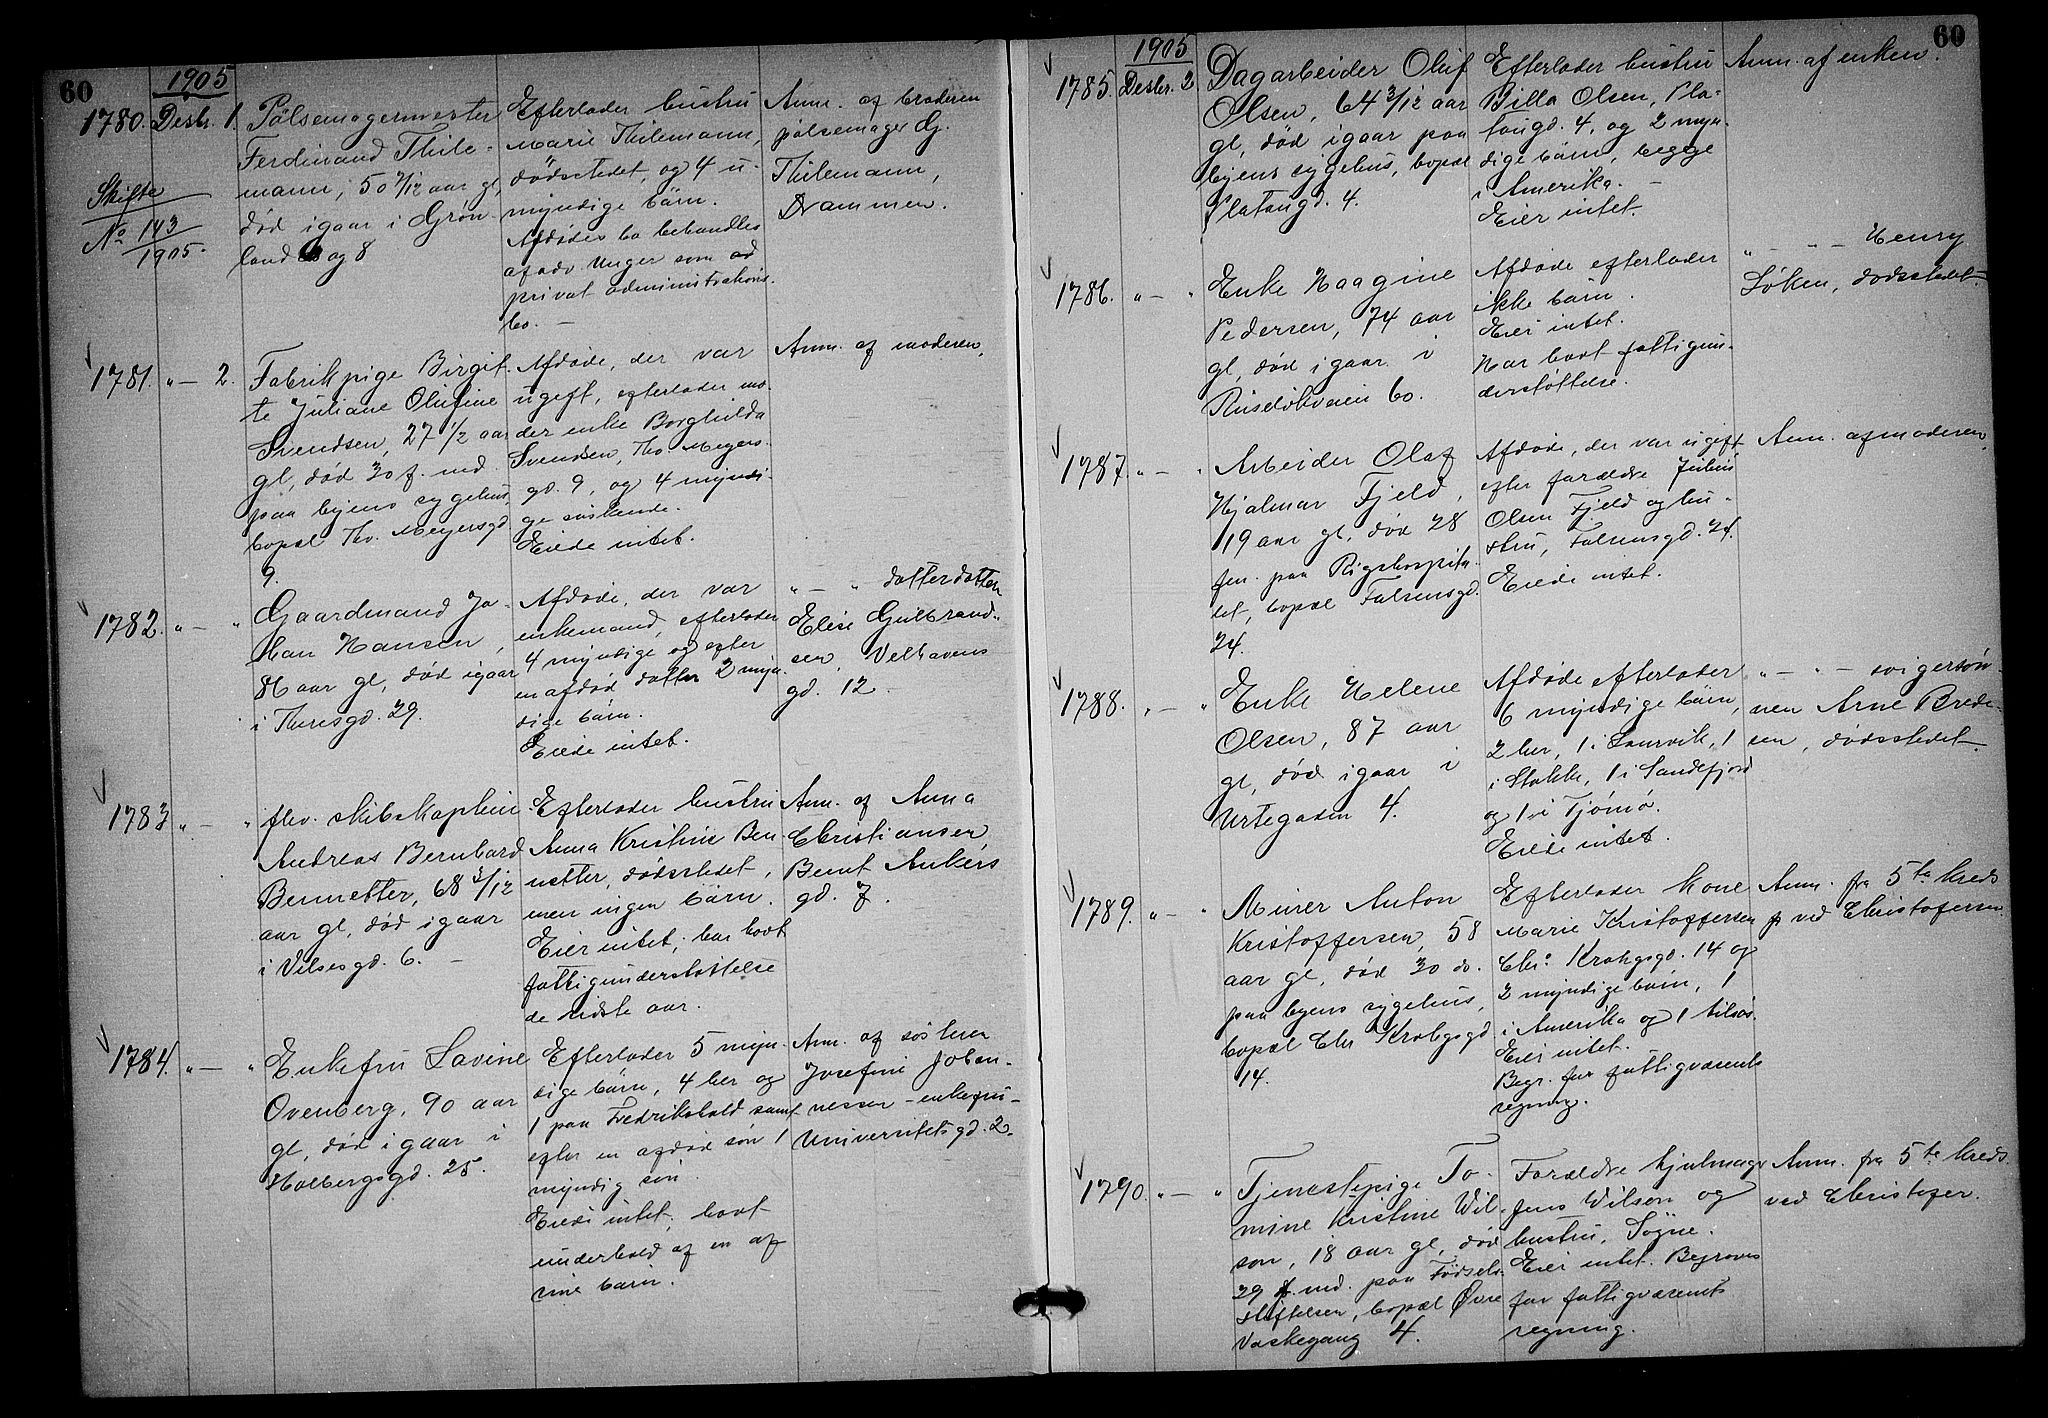 60
1905
1780. Desbr. 1.
Skifte
No 143
1905.
Pølsemagermester
Ferdinand Thile-
mann, 50 2/12 aar gl,
død igaar i Grøn-
land 6 og 8
Efterlader hustru
Marie Thilemann,
dødsstedet, og 4 u-
myndige børn.
Afdødes bo behandles
af adv. Unger som
privat administrations-
bo. —
Anm. af broderen
pølsemager G.
Thilemann,
Drammen.
1781. " — 2.
Fabrikpige Birgit-
te Juliane Olufine
Svendsen, 27 1/2 aar
gl, død 30 f. md.
paa byens sygehus,
bopæl Thv. Meyersgd.
9.
Afdøde, der var
ugift, efterlader mo-
der enke Borghilda
Svendsen, Thv. Meyers-
gd. 9, og 4 myndi-
ge søskende.
Eiede intet.
Anm. af moderen,
1782. " — "
Gaardmand Jo-
han Hansen,
86 aar gl, død igaar
i Theresgd. 29.
Afdøde, der var
enkemand, efterlader
4 myndige og efter
en afdød datter 2 myn-
dige børn.
Eiede intet.
" — " dotterdatter
Elise Gulbrand-
sen, Velhavens
gd. 12
1783 " — "
flev. skibskaptein
Andreas Bernhard
Bennetter, 68 3/12
aar gl, død igaar
i Vibesgd. 6. —
Efterlader hustru
Anna Kristine Ben-
netter, dødsstedet,
men ingen børn.
Eier intet; har havt
fattigunderstøttelse
de sidste aar.
Anm. af Anna
Christiansen
Bernt Ankers
gd. 7.
1784. " — "
Enkefru Lavine
Ovenberg, 90 aar
gl, død igaar i
Holbergsgd. 25.
Efterlader 5 myn-
dige børn, 4 her og
1 paa Fredrikshald samt
efter en afdød søn 1
myndig søn.
Eiede intet, havt
underhold af en af
sine børn.
Anm. af søsteren
Josefine Johan-
nessen – enkefru –
Universitetsgd. 2.
60
1905
1785. Desbr. 2
Dagarbeider Oluf
Olsen, 64 3/12 aar
gl, død igaar paa
byens sygehus, bopæl
Platougd. 4.
Efterlader hustru
Billa Olsen, Pla-
tougd. 4, og 2 myn-
dige børn, begge
i Amerika. —
Eier intet.
Anm. af enken.
1786. " — "
Enke Haagine
Pedersen, 74 aar
gl, død igaar i
Ruseløkveien 60.
Afdøde efterlader
ikke børn.
Eier intet.
Har havt fattigun-
derstøttelse.
" — " — Henry
Løken, dødsstedet.
1787. " — "
Arbeider Olaf
Hjalmar Fjeld,
19 aar gl, død 28
fm. paa Rigshospita-
let, bopæl Falsensgd.
24.
Afdøde, der var ugift,
efter forældre Julius
Olsen Fjeld og hu-
stru, Falsensgd. 24.
Eiede intet.
Anm. af moderen
1788. " — "
Enke Helene
Olsen, 87 aar
gl, død igaar i
Urtegaden 4.
Afdøde efterlader
6 myndige børn,
2 her, 1 i Laurvik, 1
i Stokke, 1 i Sandefjord
og 1 i Tjømø.
Eiede intet.
" — " — svigersøn-
nen Arne Brede-
sen, dødsstedet.
1789. " — "
Murer Anton
Kristoffersen, 58
aar gl, død 30 do.
paa byens sygehus,
bopæl Chr Krohgsgd
14.
Efterlader kone
Marie Kristoffersen
Chr. Krohgsgd. 14 og
2 myndige børn, 1
i Amerika og 1 tilsjøs.
Eier intet.
Begr. for fattigvæsenets
regning.
Anm. fra 5te kreds
ved Christofersen
1790. " — "
Tjenestepige To-
mine Kristine Wil-
son, 18 aar gl, død
29 f. md. paa Fødsels-
stiftelsen, bopæl Øvre
Vaskegang 4.
Forældre hjulmager
Jens Wilson og
hustru, Søgne.
Eier intet. Begraves
for fattigvæsenets
regning.
Anm. fra 5te kreds
ved Christofer.